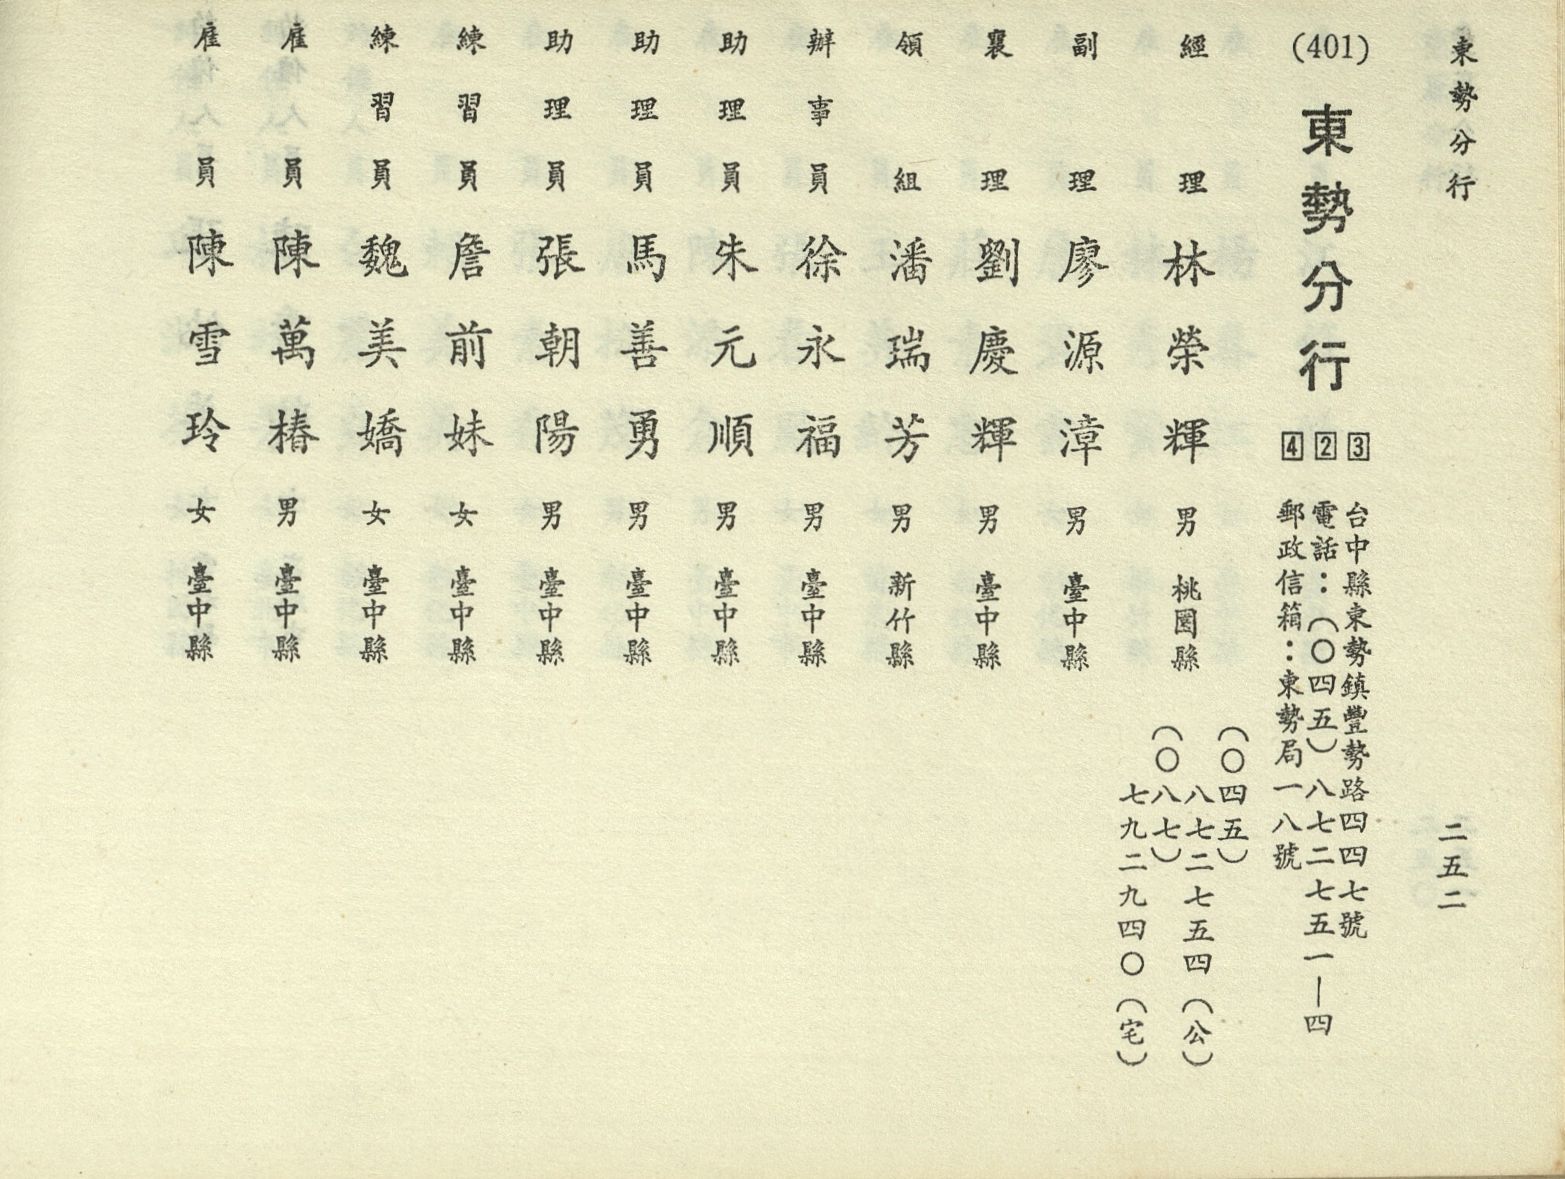 東勢分行
二五二
(401)東勢分行
3 台中縣東勢鎮豐勢路四四七號
2 電話：（〇四五）八七二七五一—四
4 郵政信箱：東勢局一八號
經理 林榮輝 男 桃園縣
（〇四五）
八七二七五四（公）
（〇八七）
七九二九四〇（宅）
副理 廖源漳 男 臺中縣
襄理 劉慶輝 男 臺中縣
領組 潘瑞芳 男 新竹縣
辦事員 徐永福 男 臺中縣
助理員 朱元順 男 臺中縣
助理員 馬善勇 男 臺中縣
助理員 張朝陽 男 臺中縣
練習員 詹前妹 女 臺中縣
練習員 魏美嬌 女 臺中縣
雇員 陳萬椿 男 臺中縣
雇員 陳雪玲 女 臺中縣